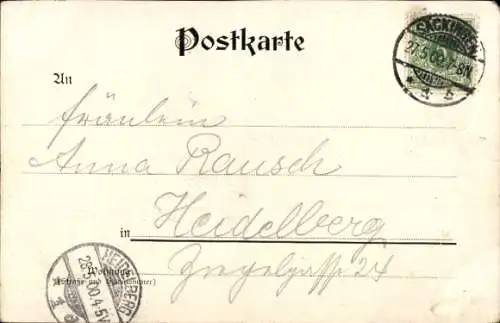 Postkarte
SÄCKINGEN
27.5.00.7-8N
* a b
An
Fräulein
Anna Rausch
Heidelberg
in
Ziegelgasse 24
Wohnung
(Strasse und Hausnummer)
HEIDELBERG
28.5.00.4-5V